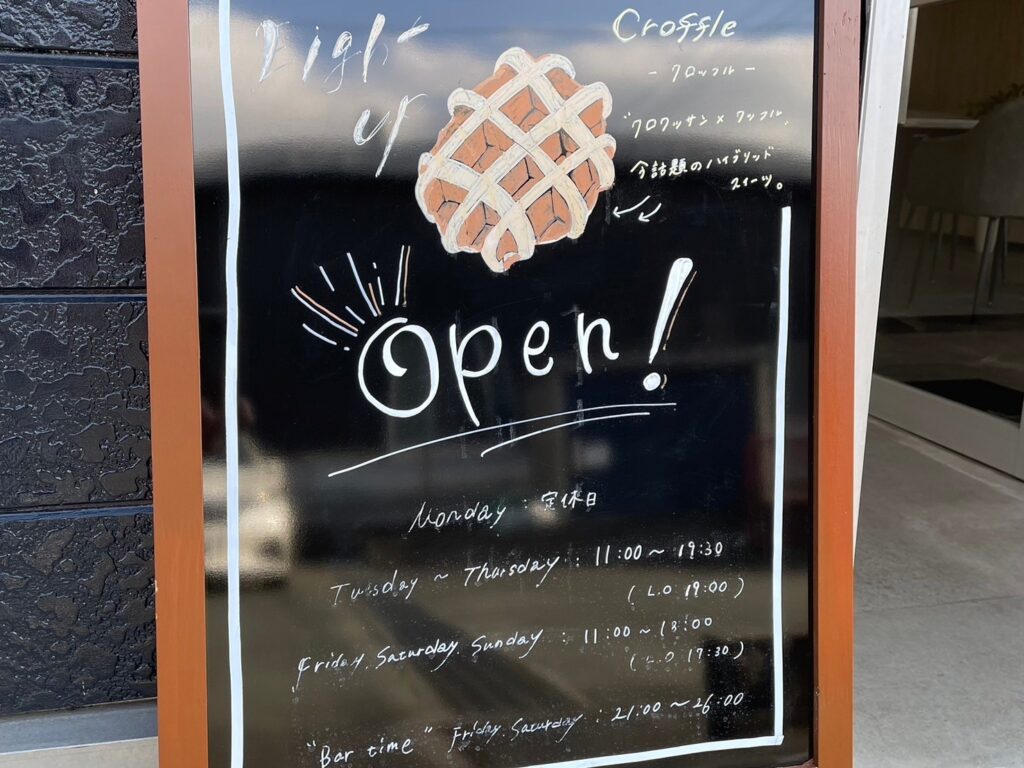 Light
up
Croffle
- クロッフル -
"クロワッサン×ワッフル"
今話題のハイブリッド
スイーツ。
Open!
Monday : 定休日
Tuesday ~ Thursday : 11:00~19:30
(L.O 19:00)
Friday, Saturday, Sunday : 11:00~18:00
(L.O 17:30)
"Bar time" Friday, Saturday : 21:00~26:00